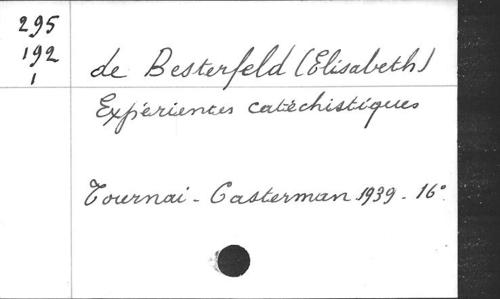 295
192
1
de Besterfeld (Elisabeth)
Expériences catéchistiques
Tournai - Casterman 1939 - 16°